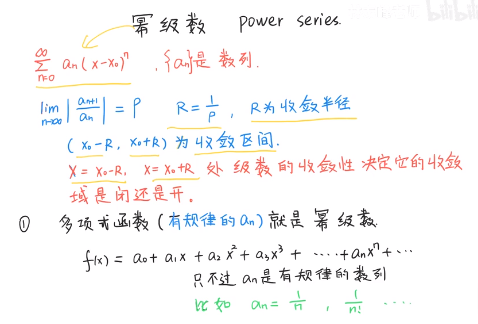 幂级数 power series.
∞∑n=0 an(x-x₀)ⁿ , {an}是数列.
lim n→∞ |an+1/an| = ρ R = 1/ρ , R为收敛半径
(x₀-R, x₀+R)为收敛区间.
X = x₀-R, X = x₀+R 处级数的收敛性决定它的收敛
域是闭还是开。
① 多项式函数(有规律的an)就是幂级数.
f(x) = a₀ + a₁x + a₂x² + a₃x³ + ····+ anxⁿ+···
只不过an是有规律的数列
比如 an = 1/n , 1/n! ····